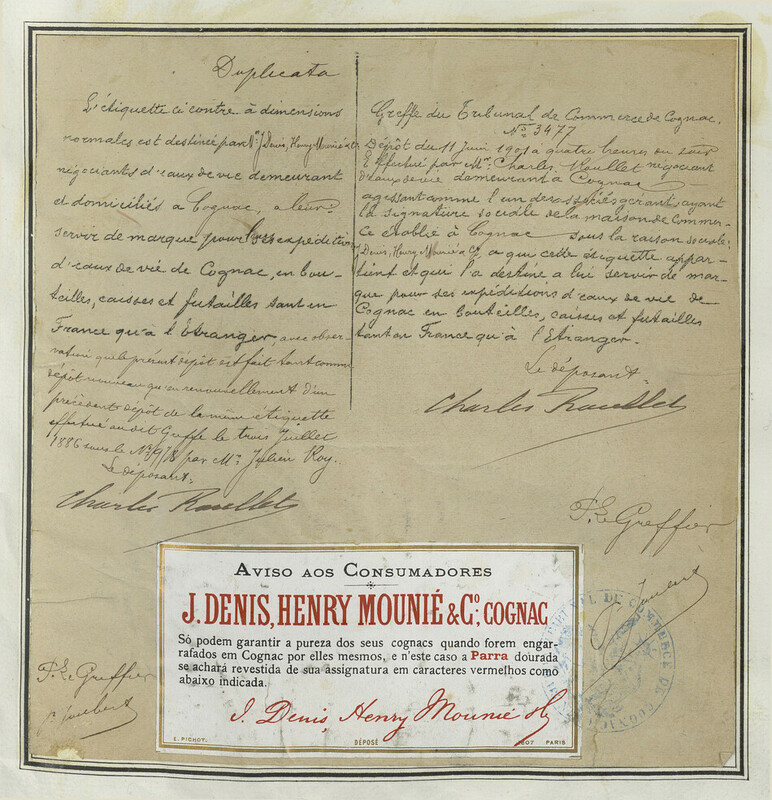 Duplicata
L'étiquette ci contre à dimensions
normales est destinée par Mrs J. Denis, Henry Mounié & Co
négociants d'eaux de vie demeurant
et domiciliés à Cognac, a leur
servir de marque pour les expéditions
d'eaux de vie de Cognac, en bou-
teilles, caisses et futailles tant en
France qu'à l'Etranger, avec obser-
vation que le présent dépôt est fait tant comme
dépôt nouveau qu'en renouvellement d'un
précédent dépôt de la même étiquette
effectué au dit Greffe le trois Juillet
1886 sous le No 978 par Mr. Julien Roy.
Le déposant.
Charles Roullet
P. Le Greffier
Greffe du Tribunal de Commerce de Cognac.
No. 3477
Dépôt du 11 Juin 1901 a quatre heures du soir
Effectué par Mr. Charles Roullet négociant
d'eaux de vie demeurant à Cognac
agissant comme l'un des associés gérants ayant
la signature sociale de la maison de commer-
ce établie à Cognac sous la raison sociale:
J. Denis, Henry Mounié & Co, a qui cette étiquette appar-
tient et qui l'a destine a lui servir de mar-
que pour ses expéditions d'eaux de vie de
Cognac en bouteilles, caisses et futailles
tant en France qu'à l'Etranger.
Le déposant.
Charles Roullet
P. Le Greffier
TRIBUNAL DE COMMERCE DE COGNAC
AVISO AOS CONSUMADORES
J. DENIS, HENRY MOUNIÉ & Co. COGNAC
Só podem garantir a pureza dos seus cognacs quando forem engar-
rafados em Cognac por elles mesmos, e n'este caso a Parra dourada
se achará revestida de sua assignatura em caracteres vermelhos como
abaixo indicada.
J. Denis, Henry Mounié &
E. PICHOT.
DÉPOSÉ
607 PARIS